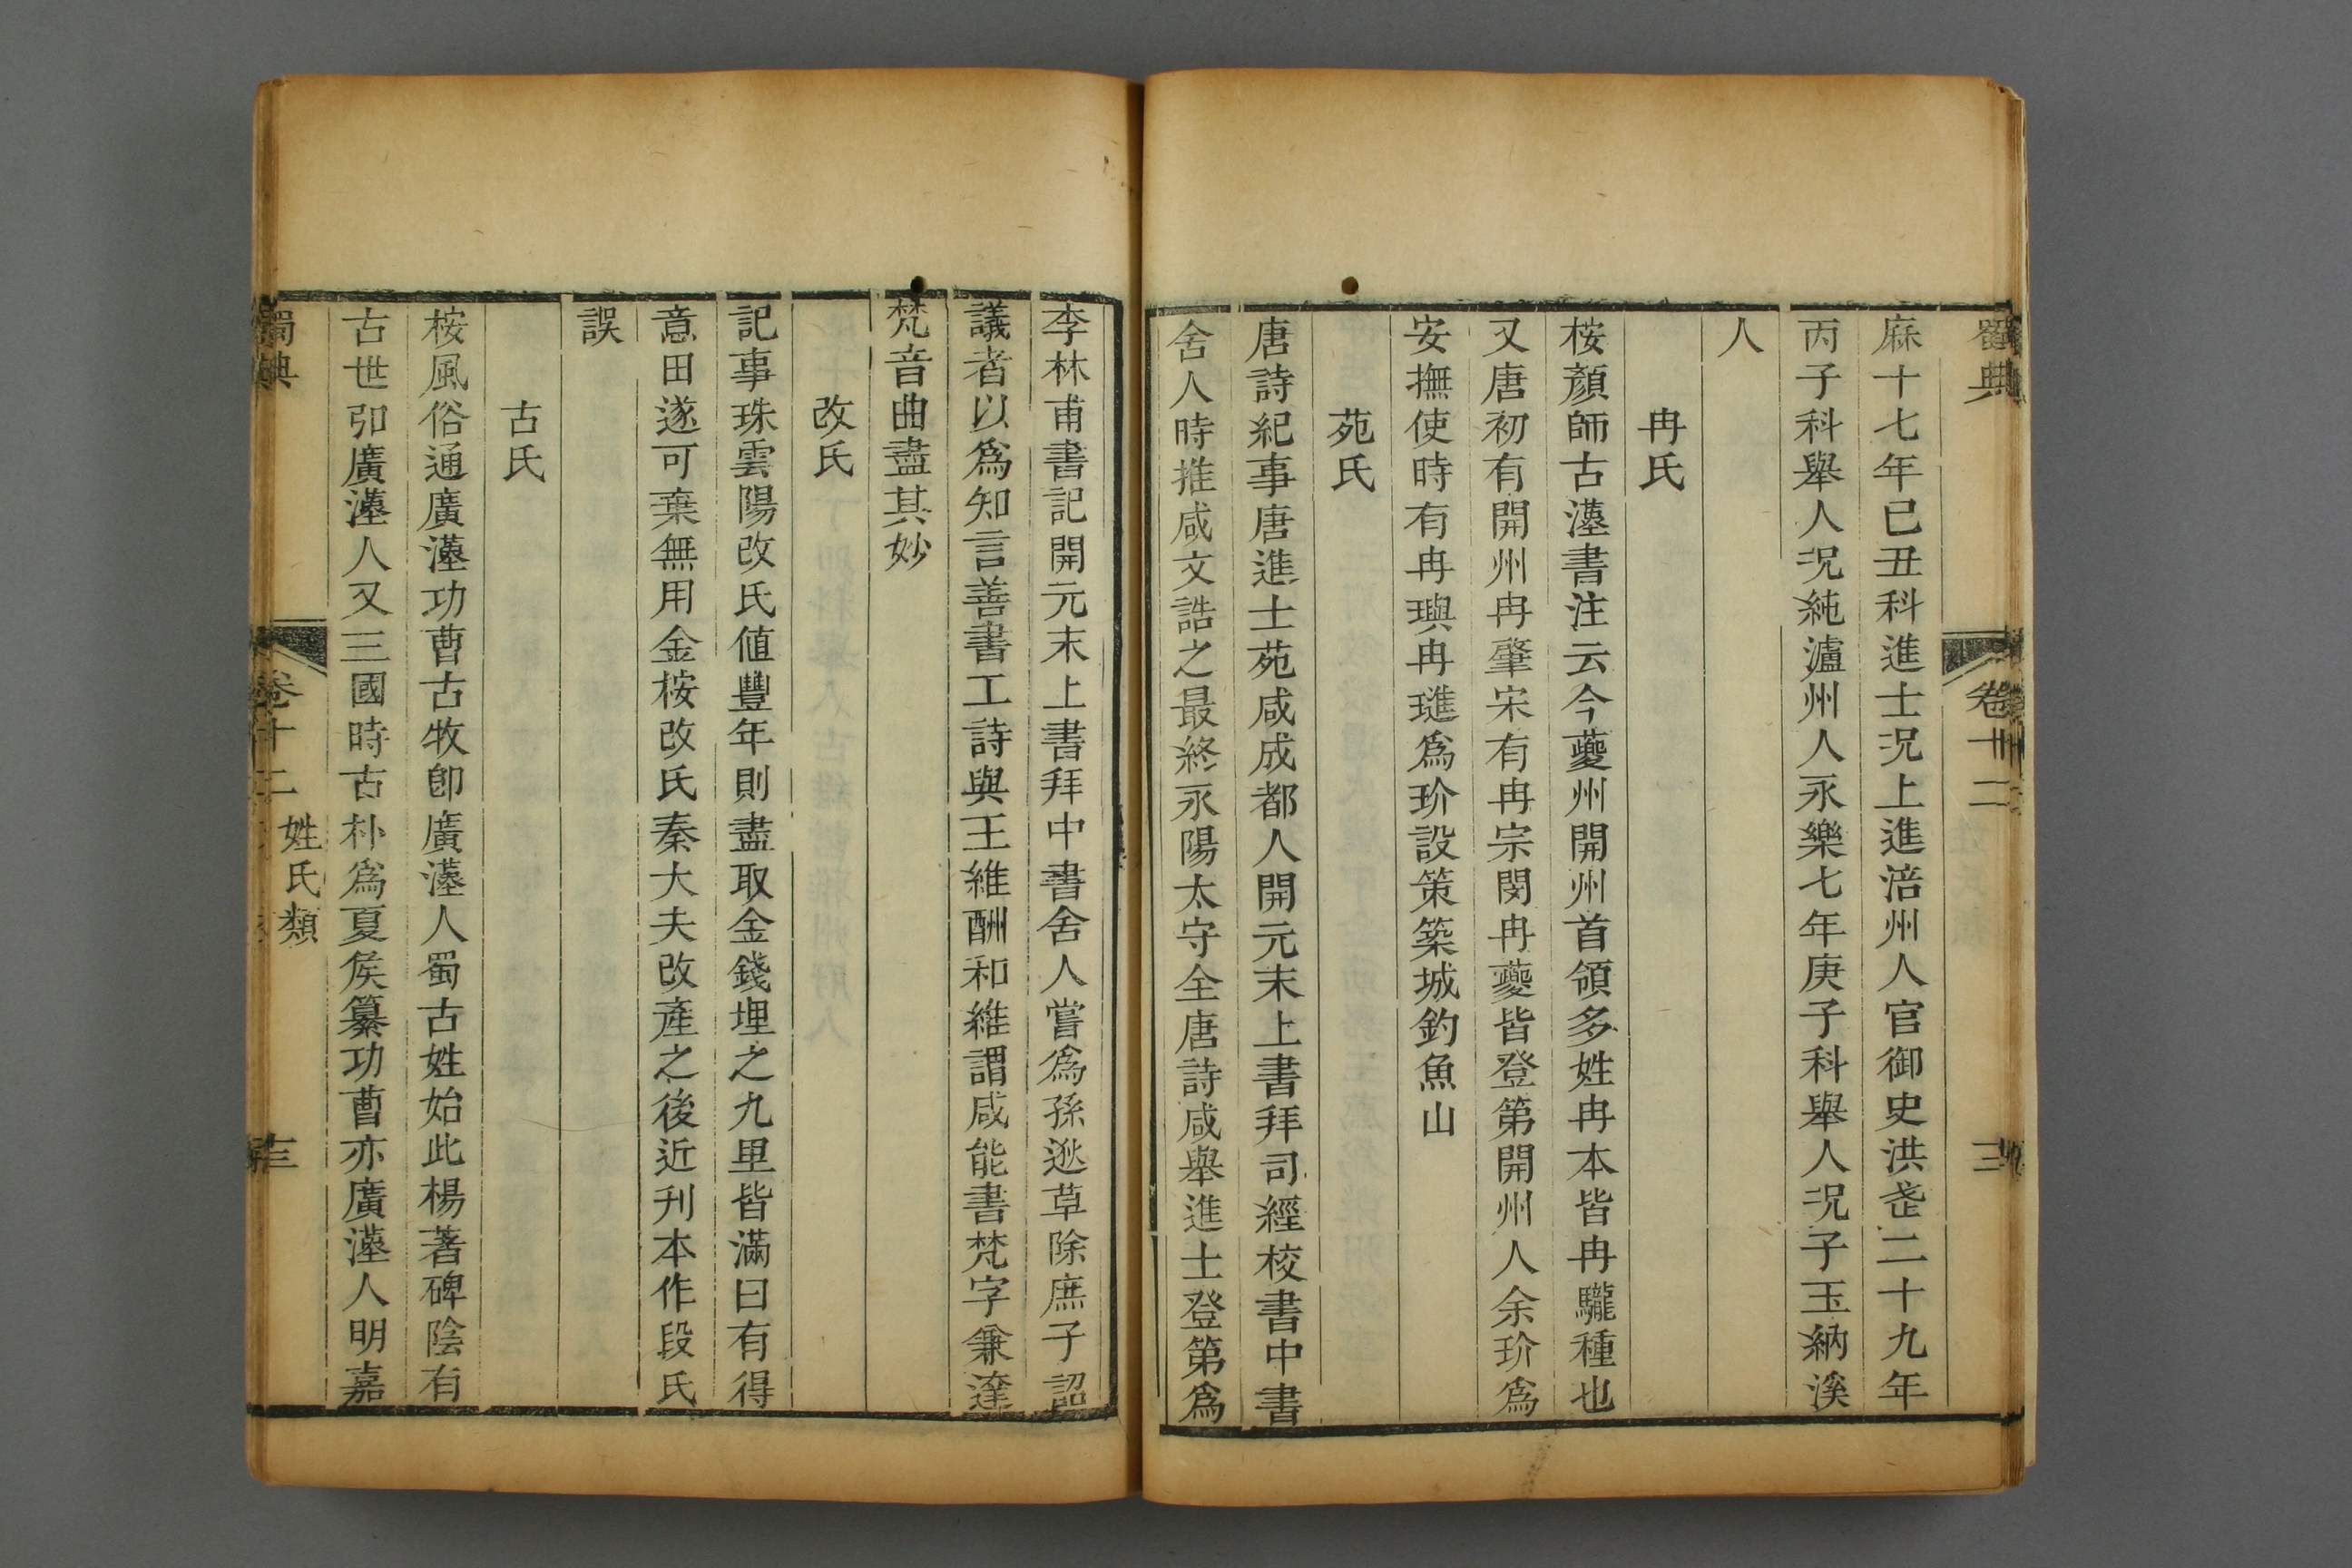 蜀典 卷十二 二
麻十七年已丑科進士況上進涪州人官御史洪武二十九年
丙子科舉人况純瀘州人永樂七年庚子科舉人况子玉納溪
人
冉氏
桉顏師古漢書注云今夔州開州首領多姓冉本皆冉駹種也
又唐初有開州冉肇宋有冉宗閔冉夔皆登第開州人余玠爲
安撫使時有冉璵冉璡爲玠設策築城釣魚山
苑氏
唐詩紀事唐進士苑咸成都人開元末上書拜司經校書中書
舍人時推咸文誥之最終永陽太守全唐詩咸舉進士登第爲
李林甫書記開元末上書拜中書舍人嘗爲孫逖草除庶子詔
議者以爲知言善書工詩與王維酬和維謂咸能書梵字兼達
梵音曲盡其妙
改氏
記事珠雲陽改氏値豐年則盡取金錢埋之九里皆滿曰有得
意田遂可棄無用金桉改氏秦大夫改產之後近刋本作段氏
誤
古氏
桉風俗通廣漢功曹古牧卽廣漢人蜀古姓始此楊著碑陰有
古世卭廣漢人又三國時古朴爲夏侯纂功曹亦廣漢人明嘉
蜀典 卷十二 姓氏類 三